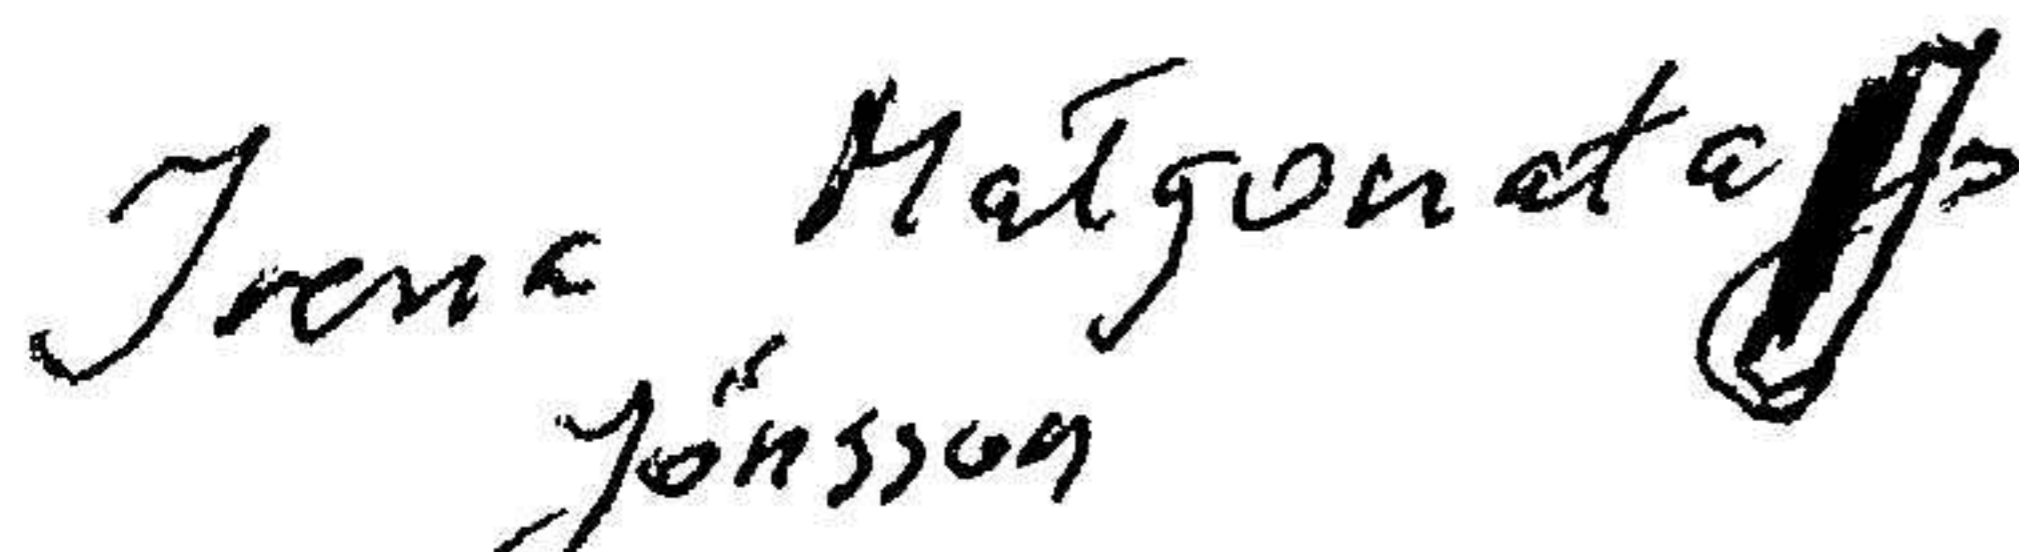 Irena Małgorzata
Jönsson